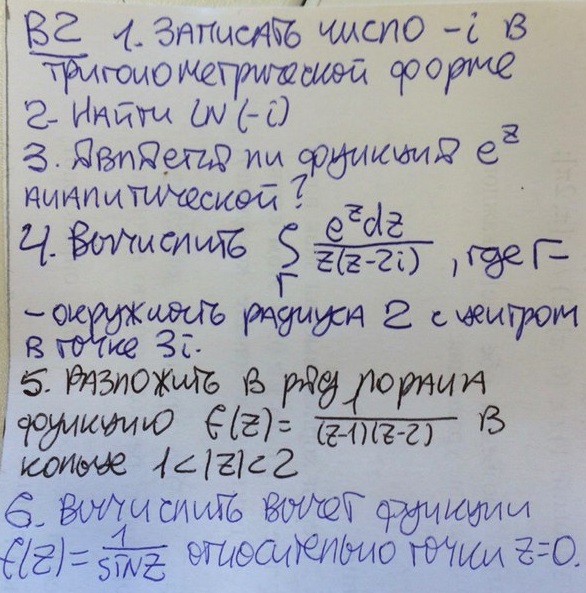 В2 1. Записать число -i в
тригонометрической форме
2. Найти LN(-i)
3. Является ли функция e^z
аналитической?
4. Вычислить ∫_Γ e^z dz / z(z-2i), где Γ-
- окружность радиуса 2 с центром
в точке 3i.
5. Разложить в ряд Лорана
функцию f(z) = ―/(z-1)(z-2) в
кольце 1<|z|<2
6. Вычислить вычет функции
f(z) = 1/SINZ относительно точки z=0.